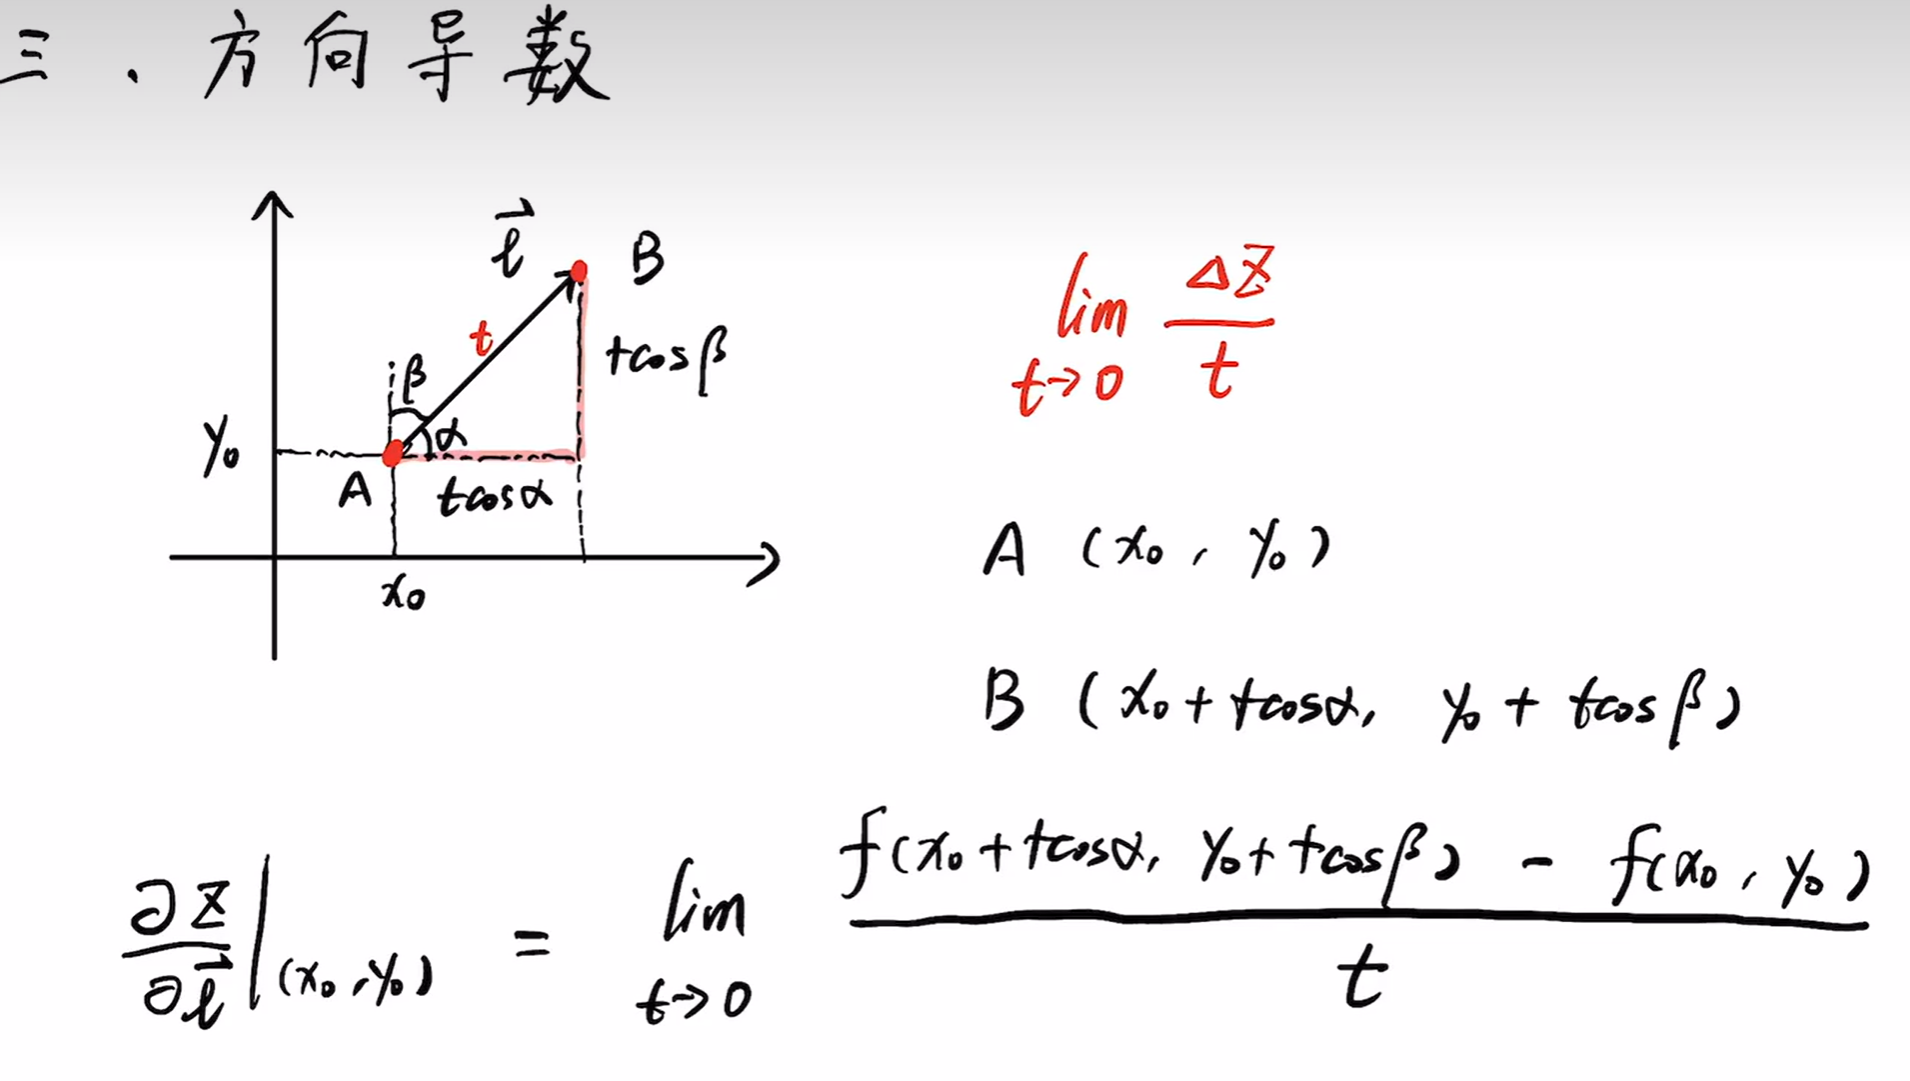 三、方向导数
l⃗ B
t
tcosβ
β
α
y₀
A tcosα
x₀
lim ΔZ/t
t→0
A (x₀, y₀)
B (x₀+tcosα, y₀+tcosβ)
∂Z/∂l⃗ |(x₀,y₀) = lim t→0 f(x₀+tcosα, y₀+tcosβ) - f(x₀, y₀) / t